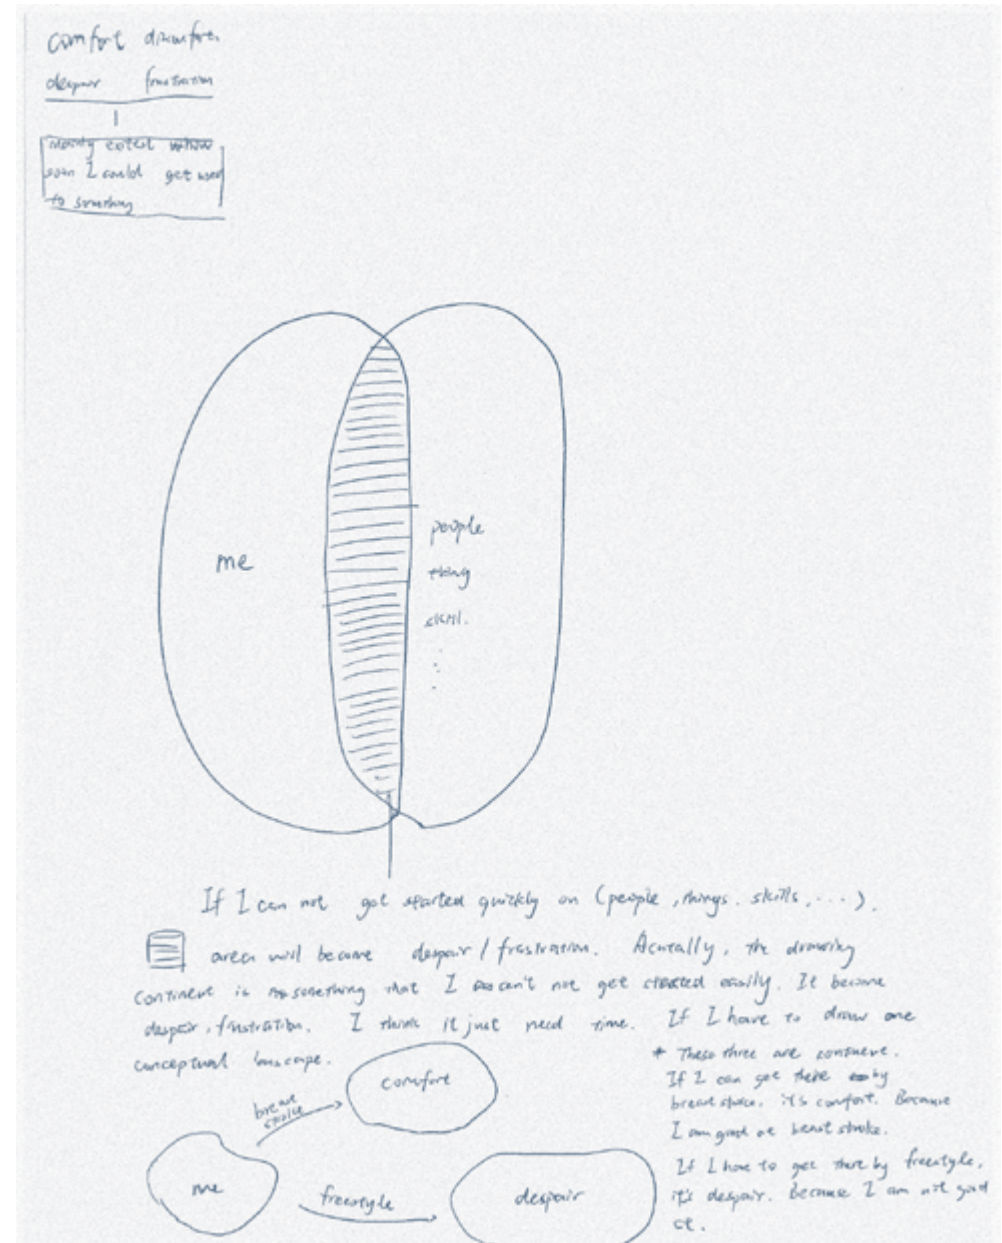 comfort discomfort.
despair frustration
mostly how
soon I could get used
to something
me
people
thing
skill.
If I can not got started quickly on (people, things. skills, ....).
area will become despair / frustration. Acutally, the drawing
continent is something that I can't not get started easily. It become
despair, frustration. I think it just need time. If I have to draw one
conceptual lanscape.
* These three are
If I can get there by
breast stroke. it's comfort. Because
I am good at breast stroke.
If I have to get there by freestyle,
it's despair. Because I am not good
at.
comfort
breast
stroke
me
freestyle
despair